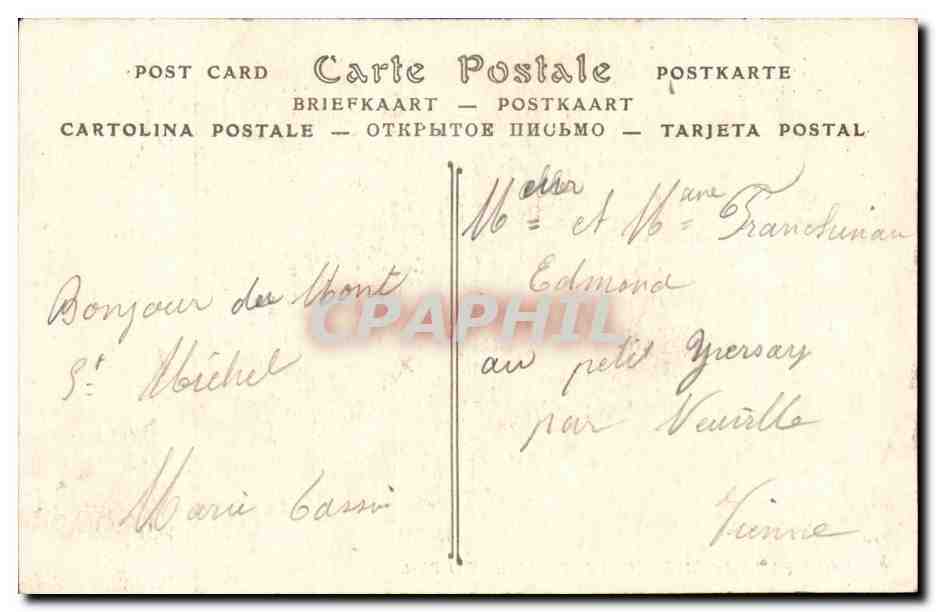 POST CARD Carte Postale POSTKARTE
BRIEFKAART — POSTKAART
CARTOLINA POSTALE — ОТКРЫТОЕ ПИСЬМО — TARJETA POSTAL
Bonjour du Mont
St Michel
Marie
M et M
Edmond
au petit
par Neuville
Vienne
CPAPHIL